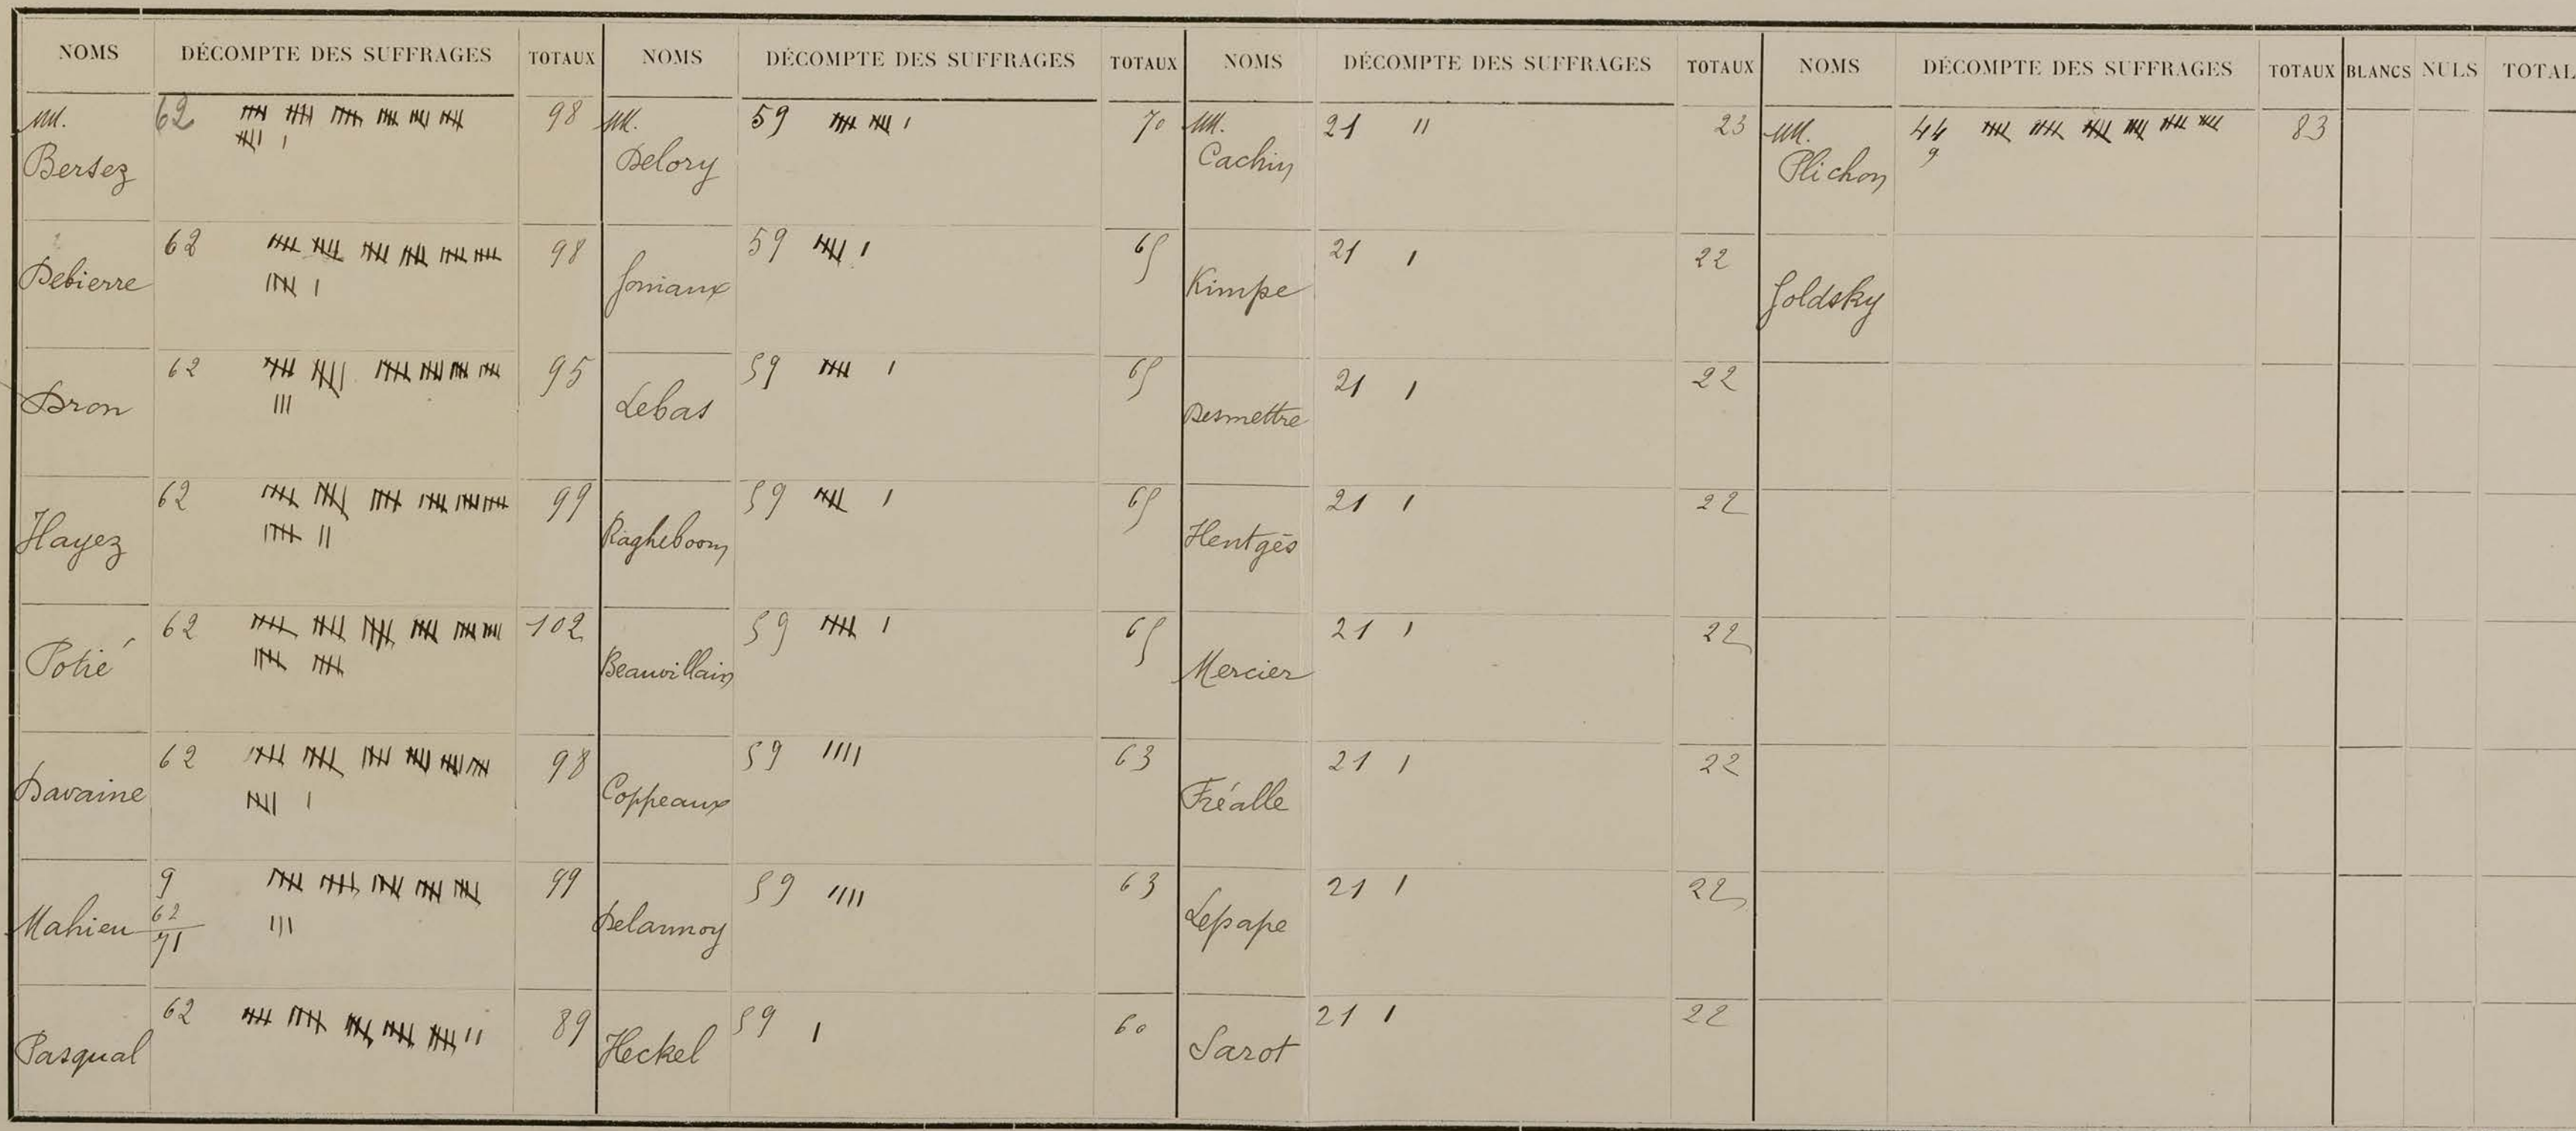 NOMS DÉCOMPTE DES SUFFRAGES TOTAUX NOMS DÉCOMPTE DES SUFFRAGES TOTAUX NOMS DÉCOMPTE DES SUFFRAGES TOTAUX NOMS DÉCOMPTE DES SUFFRAGES TOTAUX BLANCS NULS TOTAL
MM. Bersez 62 98 MM. Delory 59 70 MM. Cachin 21 II 23 MM. Plichon 44 9 83
Debierre 62 98 59 65 Kimpe 21 I 22 Goldsky
Dron 62 95 Lebas 59 65 Desmettre 21 I 22
Hayez 62 99 Ragheboom 59 65 Hentgès 21 I 22
Potié 62 102 Beauvillain 59 65 Mercier 21 I 22
Davaine 62 98 Coppeaux 59 IIII 63 Fréalle 21 I 22
Mahieu 9 62 71 99 Delannoy 59 IIII 63 Lepape 21 I 22
Pasqual 62 89 Heckel 59 I 60 Sarot 21 I 22